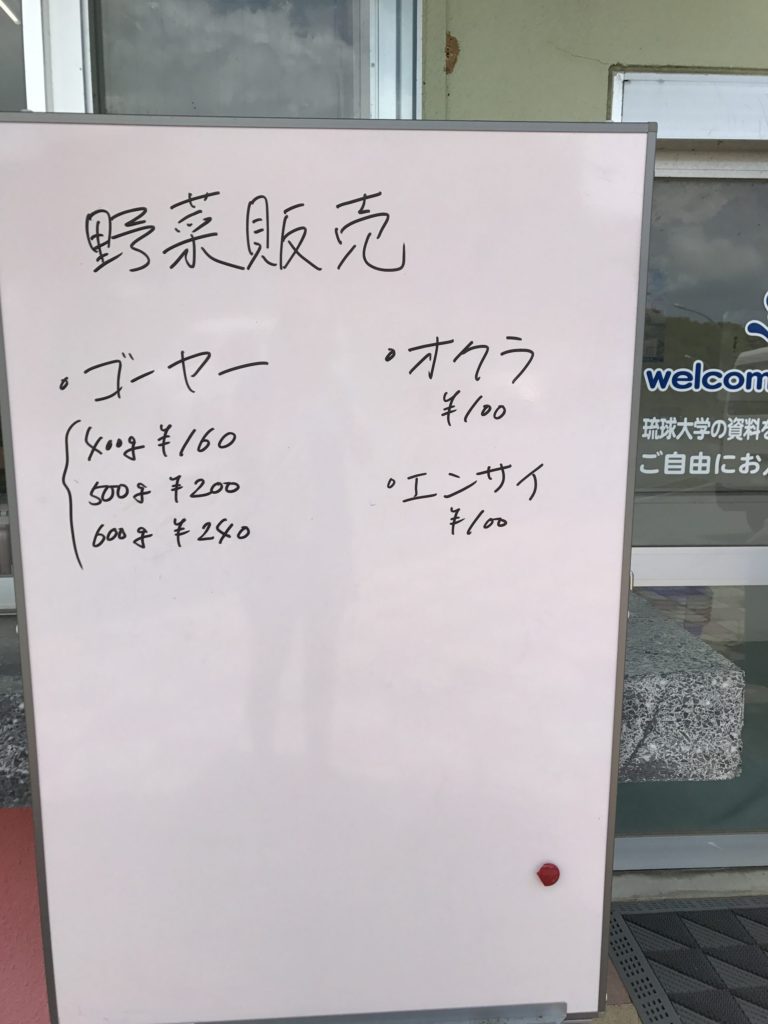 野菜販売
・ゴーヤー
400g ¥160
500g ¥200
600g ¥240
・オクラ
¥100
・エンサイ
¥100
welcom
琉球大学の資料を
ご自由にお